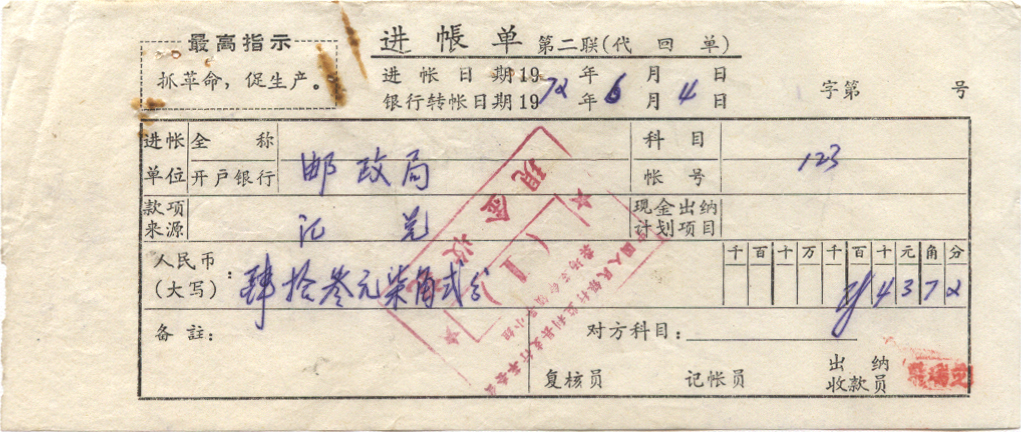 最高指示
抓革命，促生产。
进帳单 第二联(代回单)
进帐日期19 年 月 日
银行转帐日期1972年6月4日
字第 号
进帐单位 全称 邮政局 科目
开户银行 帐号 123
款项来源 汇兑 现金出纳计划项目
人民币(大写)：肆拾叁元柒角贰分 千百十万千百十元角分 ¥4372
备註： 对方科目：
复核员 记帐员 出纳收款员
现金收
(1)
中国人民银行监利县支行革委会